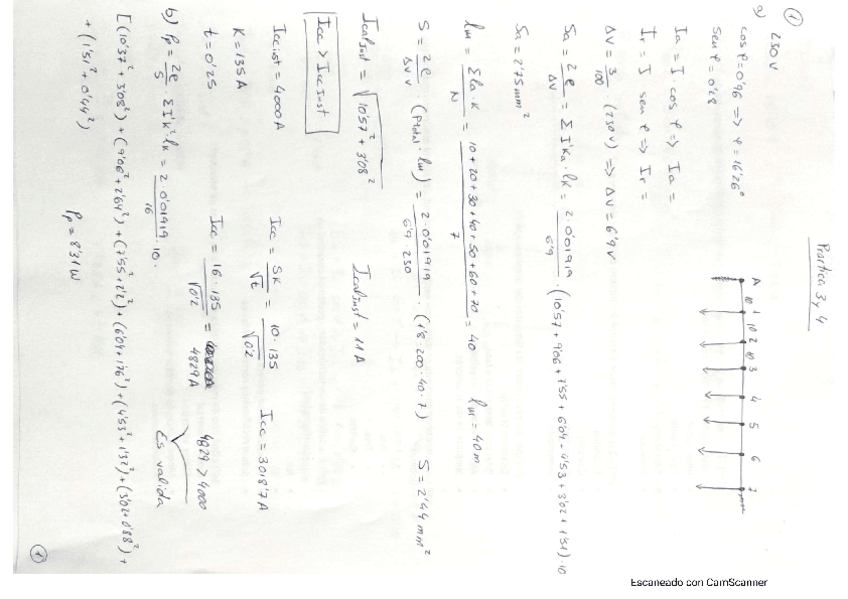 Practica 3 y 4
①
a) 230 V
cos φ = 0'96 => φ = 16'26°
sen φ = 0'28
A 1 2 3 4 5 6 7
10 10 10
Ia = I cos φ => Ia =
Ir = I sen φ => Ir =
ΔV = 3/100 (230V) => ΔV = 6'9 V
Sa = 2ρ/ΔV = Σ I'Ka · lK = 2·0'01919/6'9 · (10'57 + 9'06 + 7'55 + 6'04 + 4'53 + 3'02 + 1'51)·10
Sa = 2'75 mm²
lm = Σ la·K/N = 10+20+30+40+50+60+70/7 = 40 lm = 40 m
S = 2ρ/ΔV V (Ptotal · lm) = 2·0'01919/6'9·230 · (1'8·200·40·7) S = 2'44 mm²
Ical Inst = √10'57² + 3'08² Ical Inst = 11 A
Icc > Icc Inst
Icc inst = 4000 A Icc = SK/√t = 10·135/√0'2 Icc = 3018'7 A
K = 135 A
t = 0'2 s Icc = 16·135/√0'2 = 4829 A 4829 > 4000
Es valida
b) Pp = 2ρ/S · Σ I'K² lK = 2·0'01919/16 · 10 ·
[(10'37² + 3'08²) + (9'06² + 2'64²) + (7'55² + 2'2²) + (6'04² + 1'76²) + (4'53² + 1'32²) + (3'02² + 0'88²) +
+ (1'51² + 0'44²) Pp = 8'31 W
①
Escaneado con CamScanner